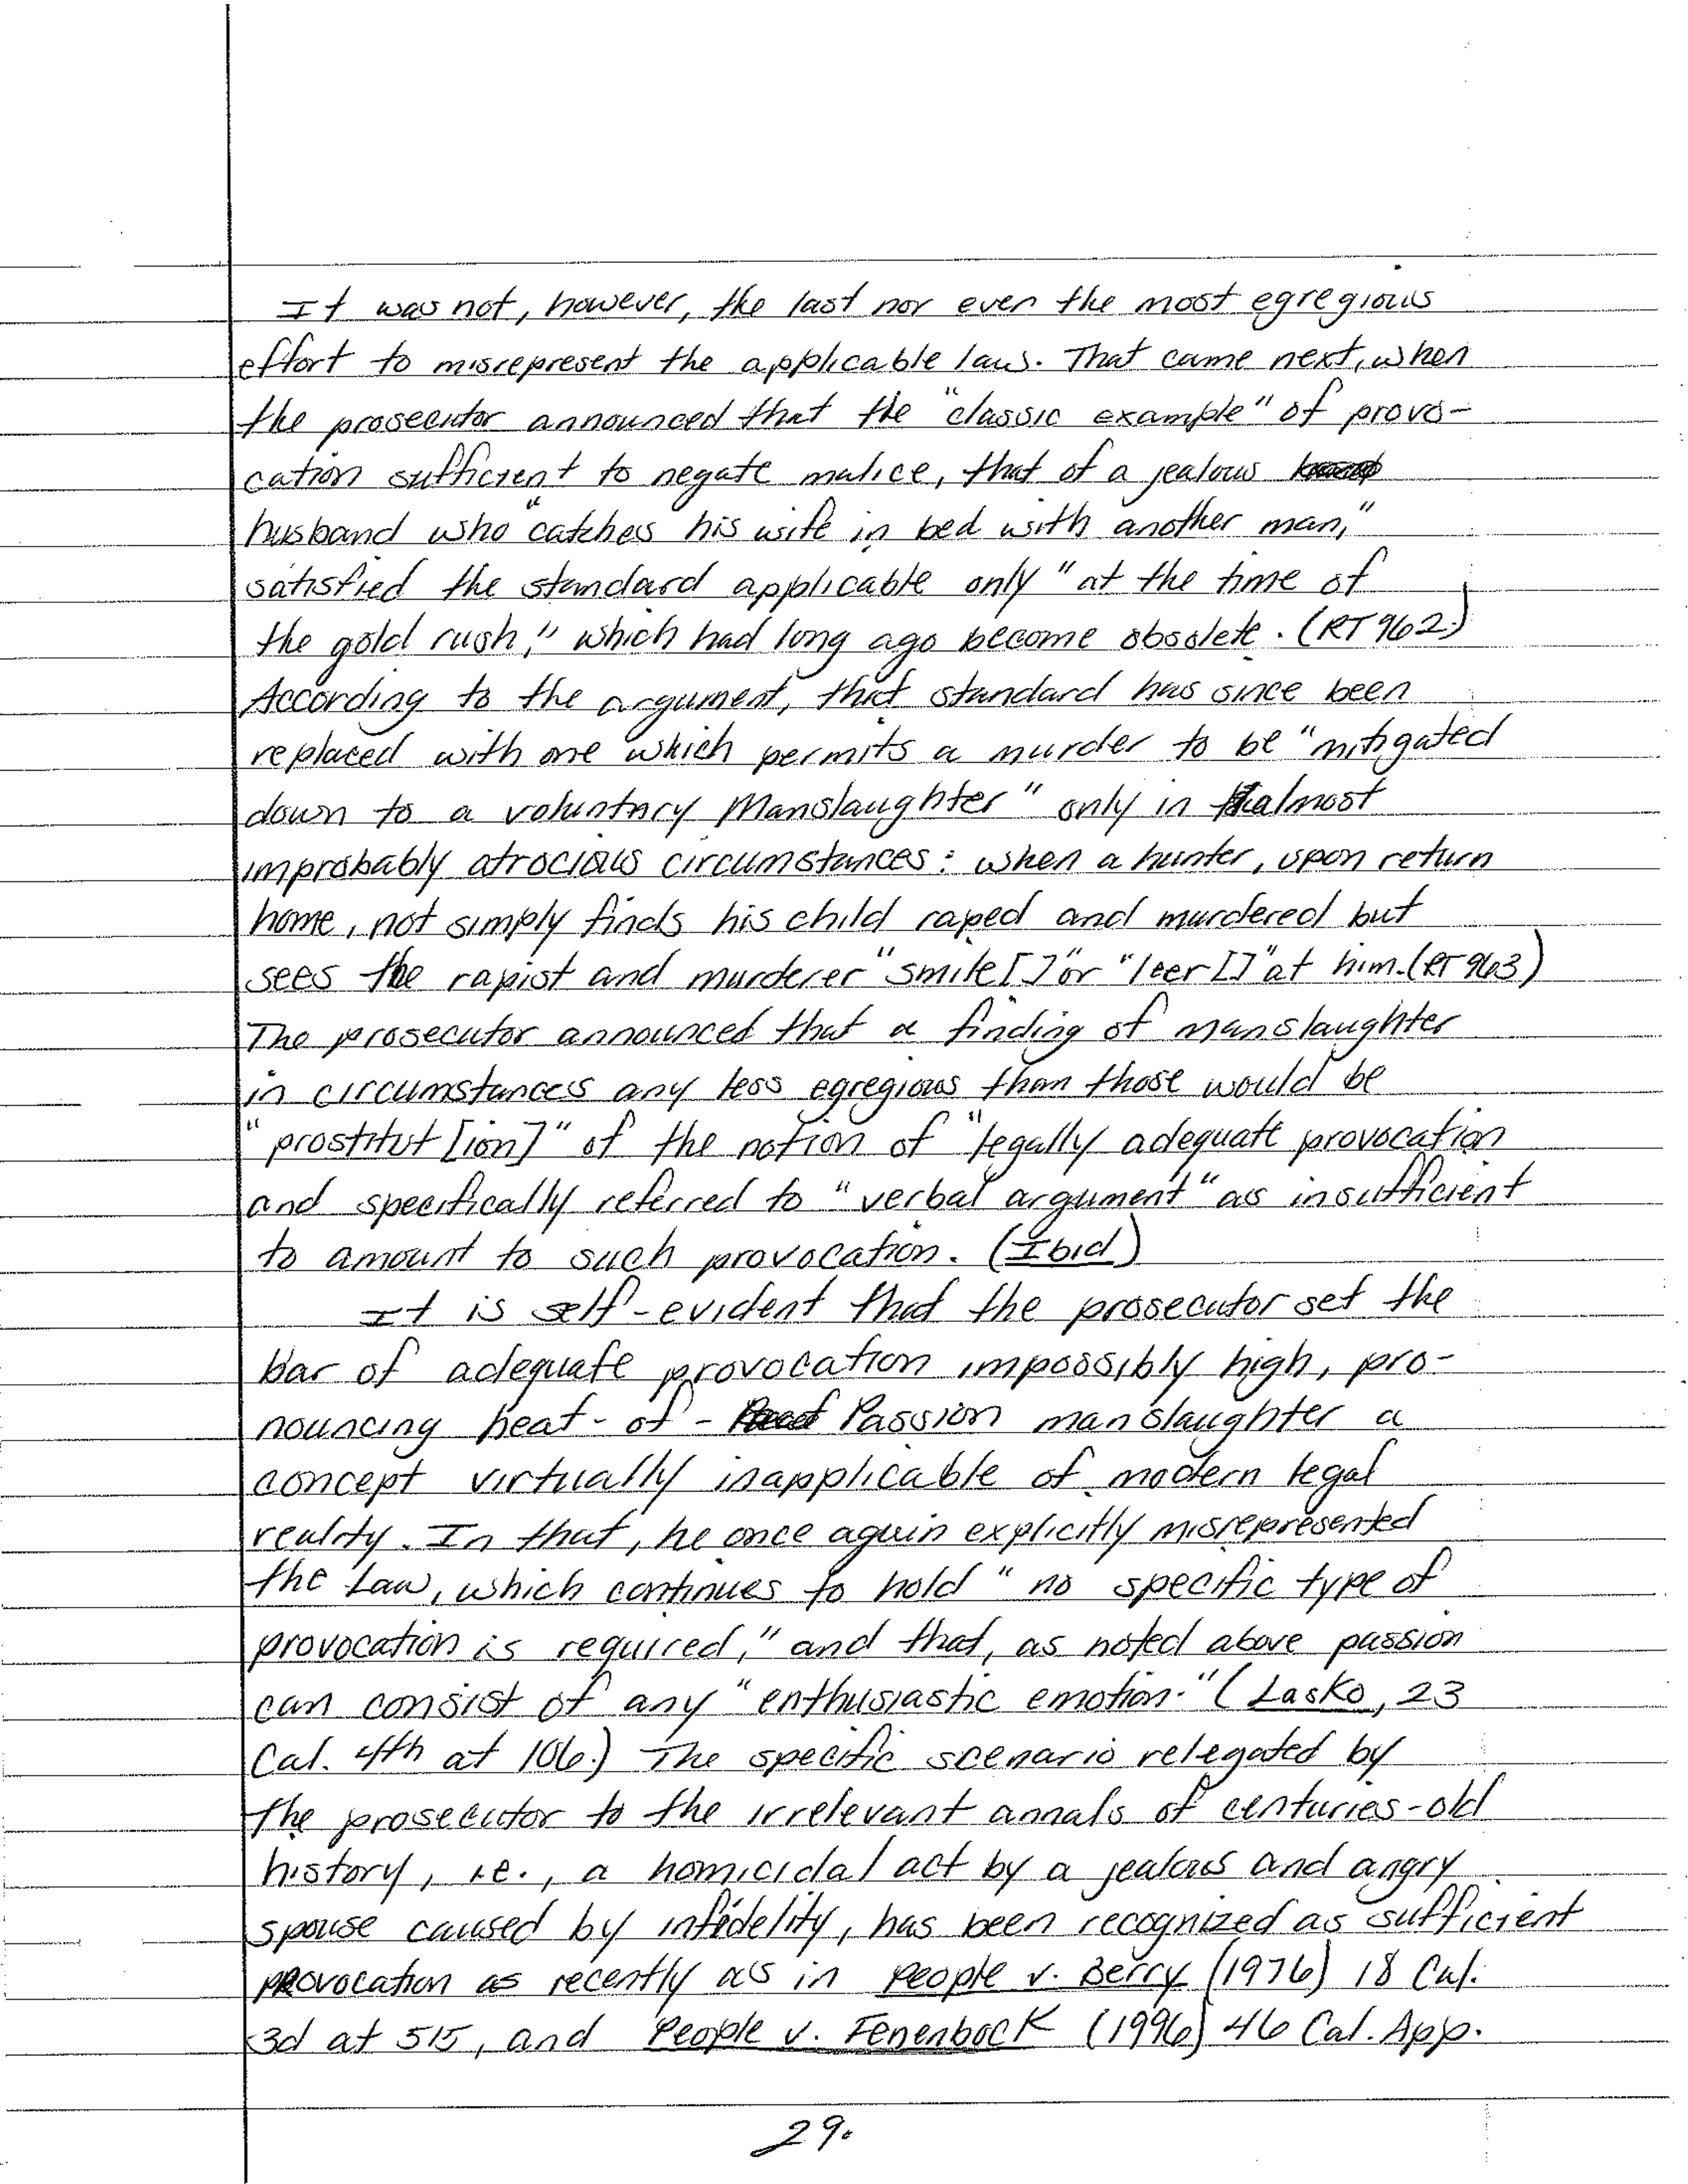 It was not, however, the last nor even the most egregious
effort to misrepresent the applicable law. That came next, when
the prosecutor announced that the "classic example" of provo-
cation sufficient to negate malice, that of a jealous
husband who "catches his wife in bed with another man,"
satisfied the standard applicable only "at the time of
the gold rush," which had long ago become obsolete. (RT 962.)
According to the argument, that standard has since been
replaced with one which permits a murder to be "mitigated
down to a voluntary Manslaughter" only in almost
improbably atrocious circumstances: when a hunter, upon return
home, not simply finds his child raped and murdered but
sees the rapist and murderer "smile[]" or "leer[]" at him. (RT 963)
The prosecutor announced that a finding of manslaughter
in circumstances any less egregious than those would be
"prostitut[ion]" of the notion of "legally adequate provocation
and specifically referred to "verbal argument" as insufficient
to amount to such provocation. (Ibid)
It is self-evident that the prosecutor set the
bar of adequate provocation impossibly high, pro-
nouncing heat-of- Passion manslaughter a
concept virtually inapplicable of modern legal
reality. In that, he once again explicitly misrepresented
the Law, which continues to hold "no specific type of
provocation is required," and that, as noted above passion
can consist of any "enthusiastic emotion." (Lasko, 23
Cal. 4th at 106.) The specific scenario relegated by
the prosecutor to the irrelevant annals of centuries-old
history, i.e., a homicidal act by a jealous and angry
spouse caused by infidelity, has been recognized as sufficient
provocation as recently as in People v. Berry (1976) 18 Cal.
3d at 515, and People v. Fenenbock (1996) 46 Cal. App.
29.